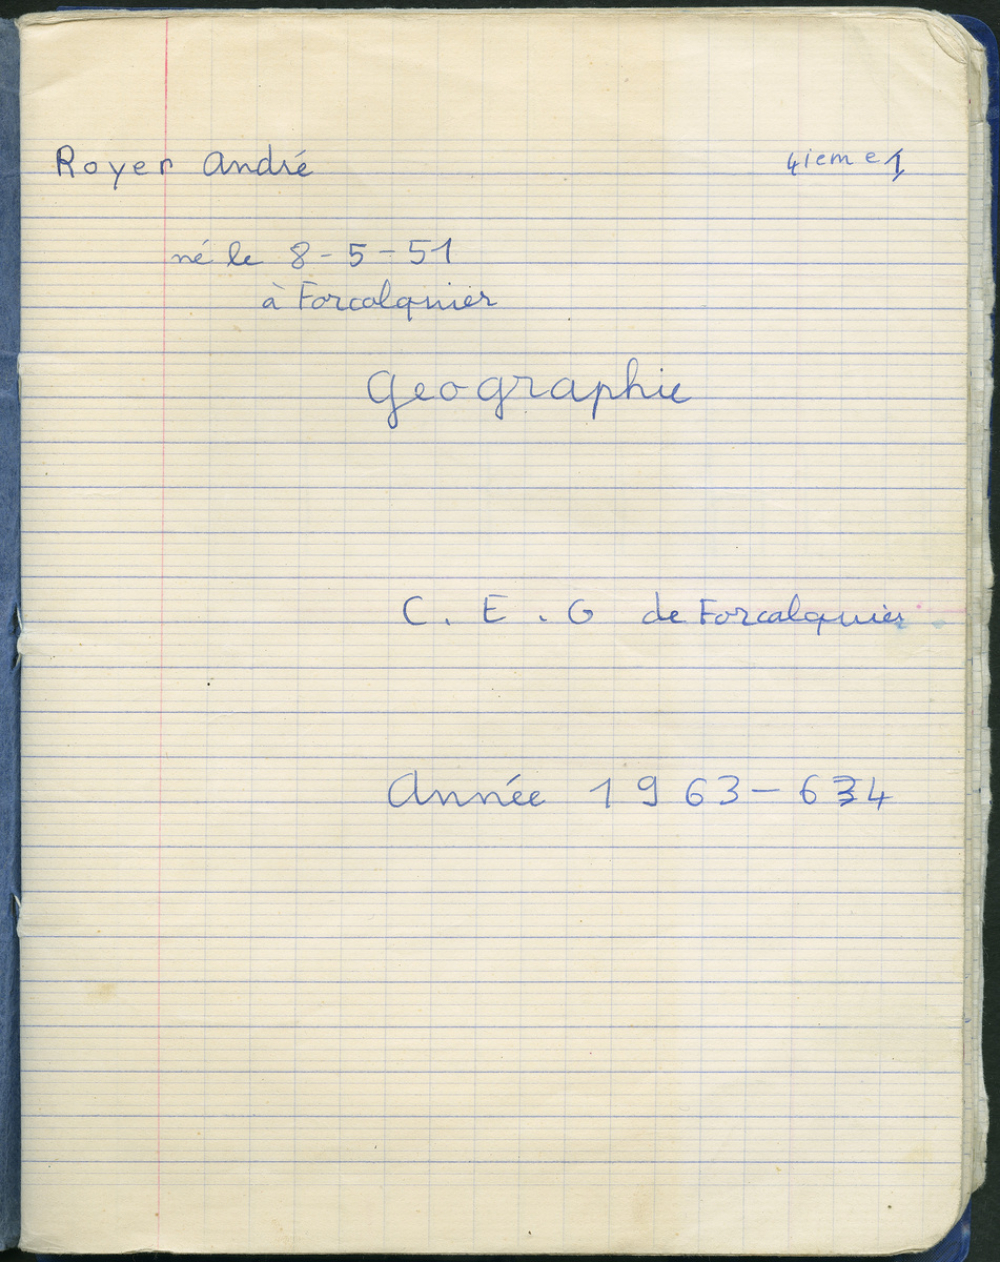 Royer André 4ieme 1
né le 8-5-51
à Forcalquier
Geographie
C. E. G de Forcalquier
Année 1963-634